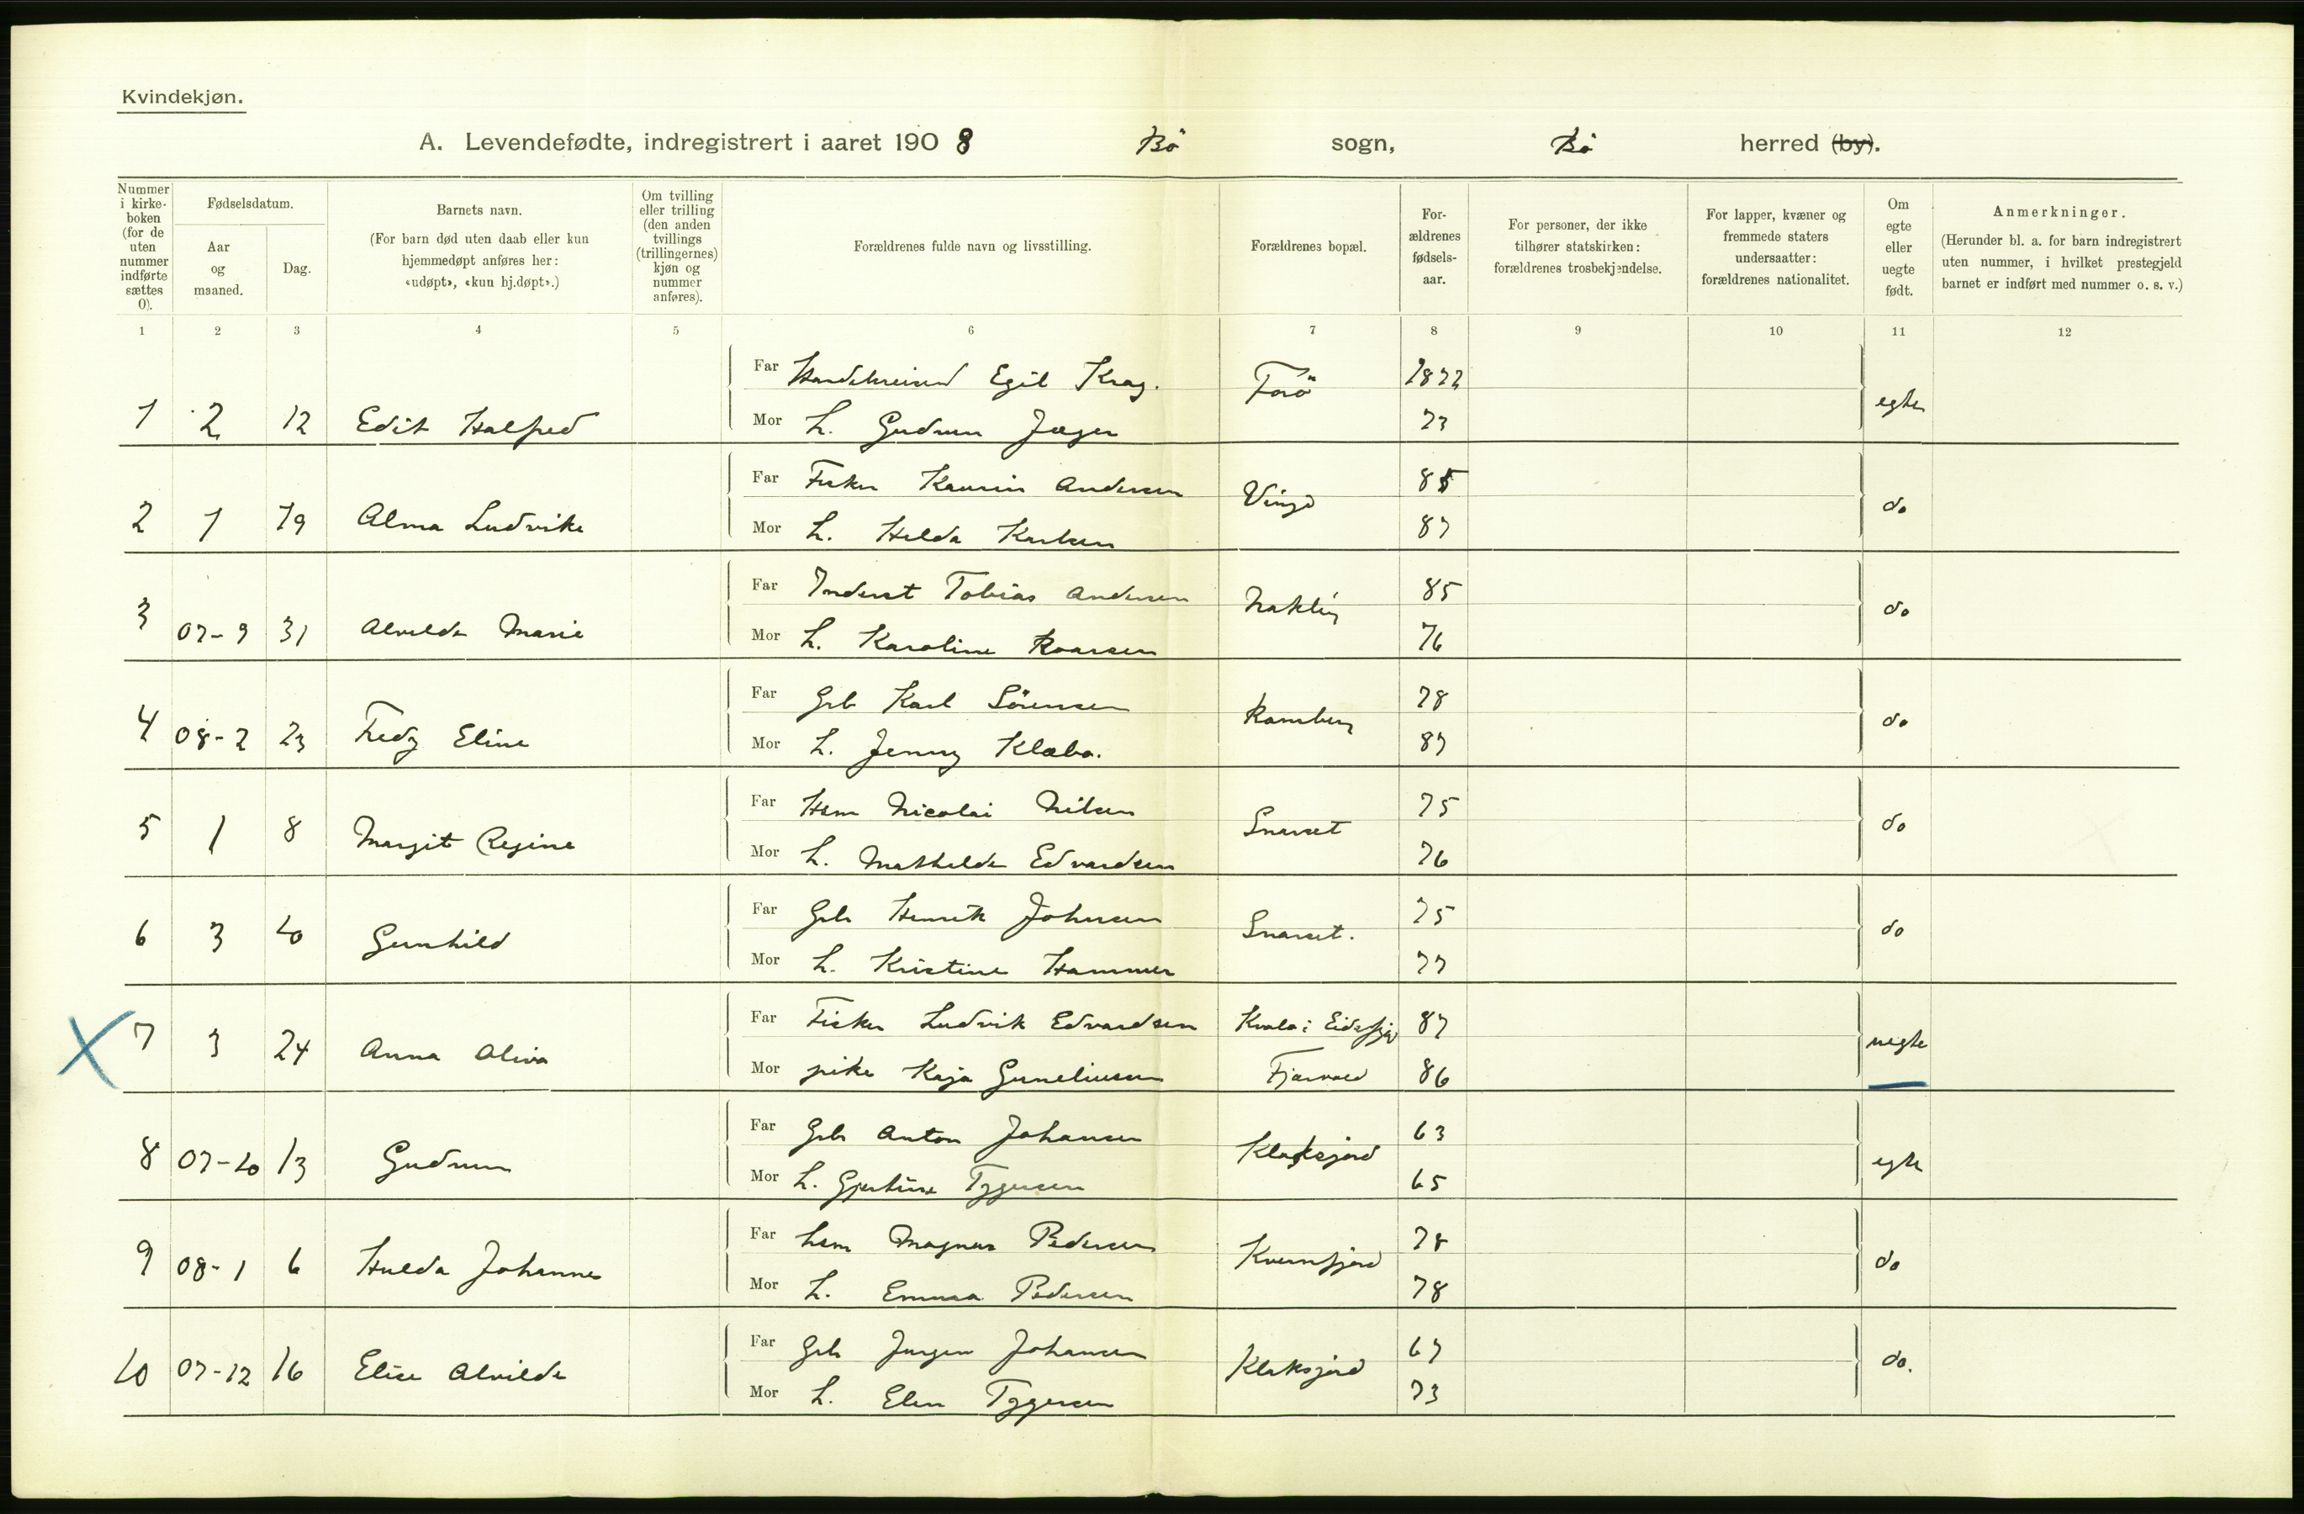 Kvindekjøn.
A. Levendefødte, indregistrert i aaret 1908 Bö sogn, Bö herred (by).
Nummer i kirke-boken (for de uten nummer indførte sættes 0).
Fødselsdatum.
Aar og maaned.
Dag.
Barnets navn.
(For barn død uten daab eller kun hjemmedøpt anføres her: «udøpt», «kun hj.døpt».)
Om tvilling eller trilling (den anden tvillings (trillingernes) kjøn og nummer anføres).
Forældrenes fulde navn og livsstilling.
Forældrenes bopæl.
For-ældrenes fødsels-aar.
For personer, der ikke tilhører statskirken: forældrenes trosbekjendelse.
For lapper, kvæner og fremmede staters undersaatter: forældrenes nationalitet.
Om egte eller uegte født.
Anmerkninger.
(Herunder bl. a. for barn indregistrert uten nummer, i hvilket prestegjeld barnet er indført med nummer o. s. v.)
1 2 3 4 5 6 7 8 9 10 11 12
Far Egil Krag. 1872
1 2 12 Edit Halfred Mor L. Gudrun Jæger 73 egte
Far Fisker Kaurin Andersen Vinje 85
2 1 19 Alma Ludvike Mor L. Hilda Karlsen 87 do
Far Inderst Tobias Andersen Nakling 85
3 07-9 31 Alvilde Marie Mor L. Karoline Roarsen 76 do
Far Gb Karl Sörensen Ramberg 78
4 08-2 23 Fredy Eline Mor L. Jenny Klæbo. 87 do
Far Hsm Nicolai Nilsen Snarset 75
5 1 8 Margit Regine Mor L. Mathilde Edvardsen 76 do
Far Gb Henrik Johnsen Snarset. 75
6 3 10 Gunhild Mor L. Kristine Hammer 77 do
Far Fisker Ludvik Edvardsen Kvalö i Eidsfjord 87
7 3 24 Anna Oliva Mor pike Kaja Guneliussen Fjærvoll 86 uegte
Far Gb Anton Johansen Klaksjord 63
8 07-10 13 Gudrun Mor L. Gjertine Tygesen 65 egte
Far Hsm Magnus Pedersen Kvernfjord 78
9 08-1 6 Hulda Johanne Mor L. Emma Pedersen 78 do
Far Gb Jörgen Johansen Klaksjord 67
10 07-12 16 Elise Alvilde Mor L. Elen Tygesen 73 do.